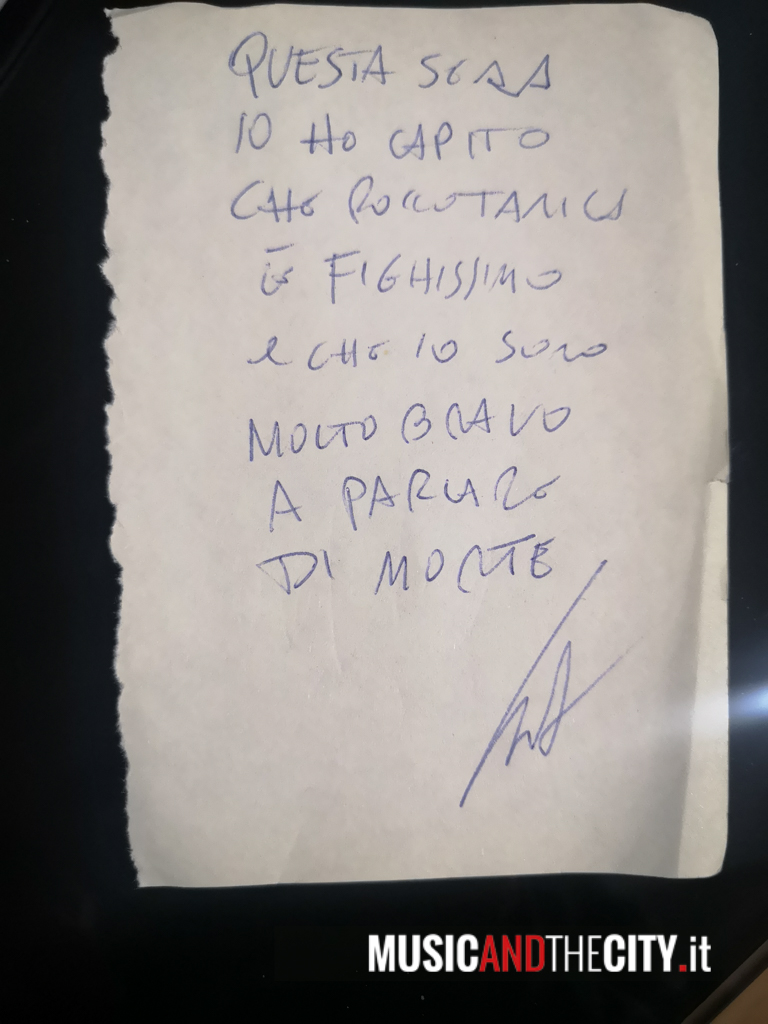 QUESTA SERA
IO HO CAPITO
CHE ROCCOTANICA
È FIGHISSIMO
e CHE IO SONO
MOLTO BRAVO
A PARLARE
DI MORTE
MUSICANDTHECITY.it